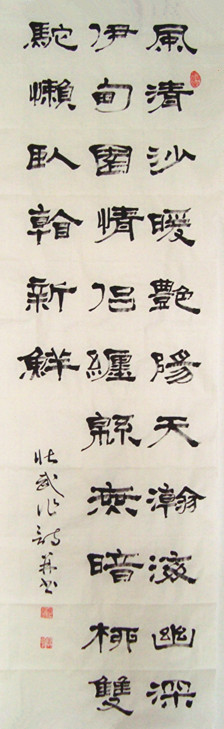 風清沙暖艷陽天瀚海幽深
伊甸園情侶纏綿無暗柳雙
駝懶臥新鮮
武作詩并書